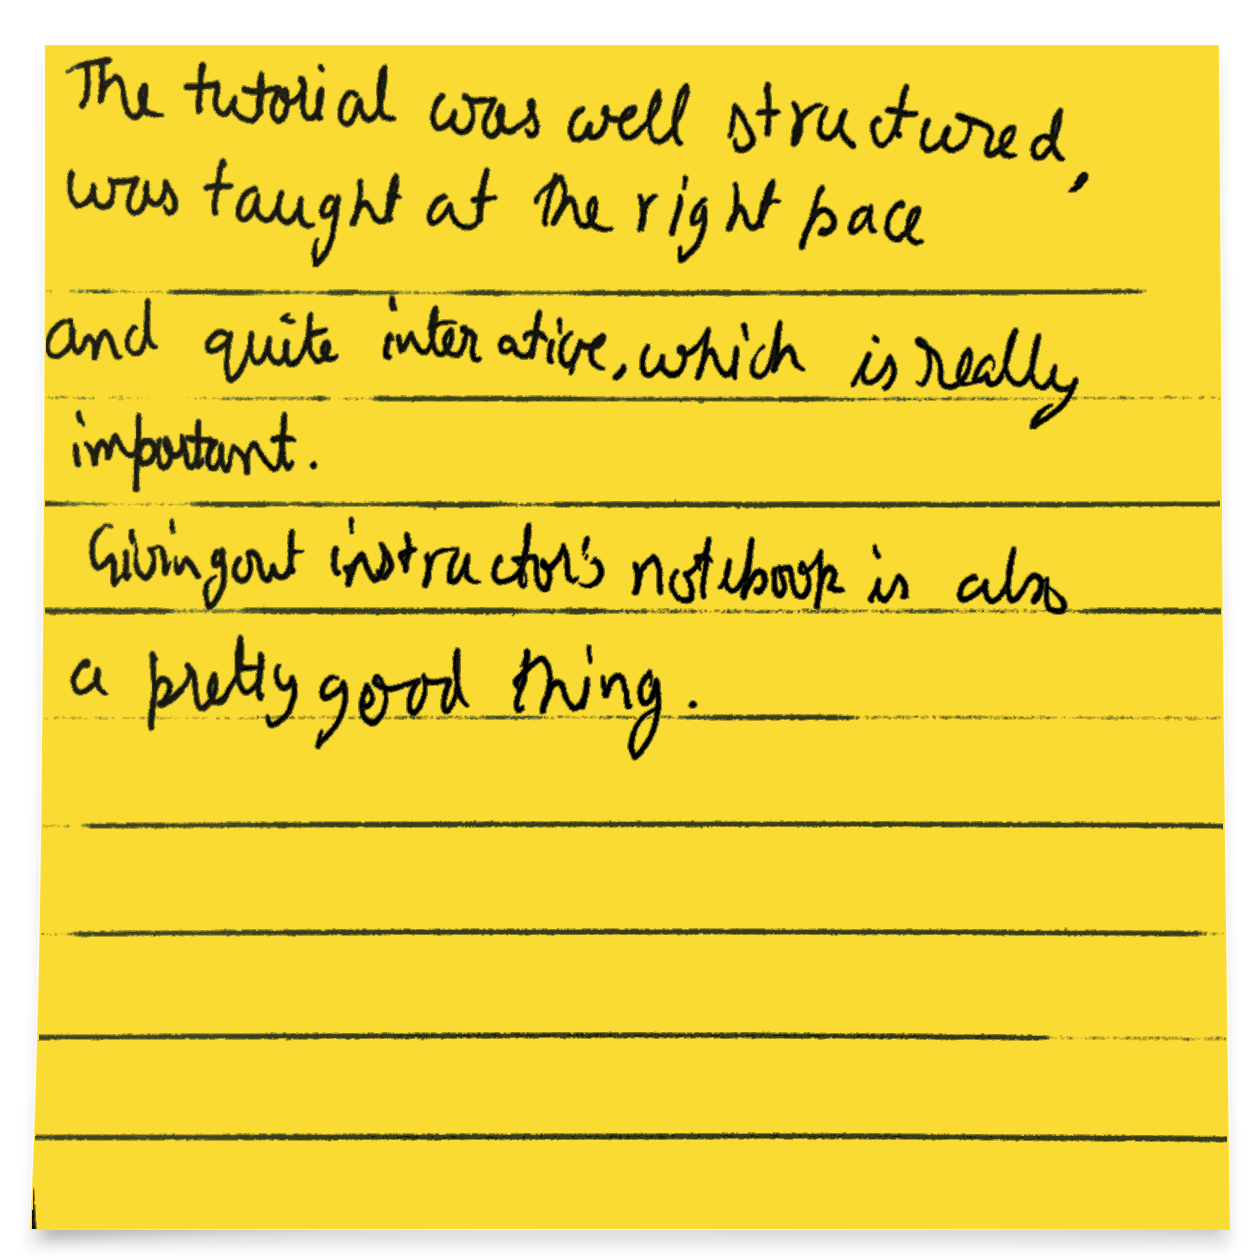 The tutorial was well structured,
was taught at the right pace
and quite interative, which is really
important.
Giving out instructor's notebook is also
a pretty good thing.